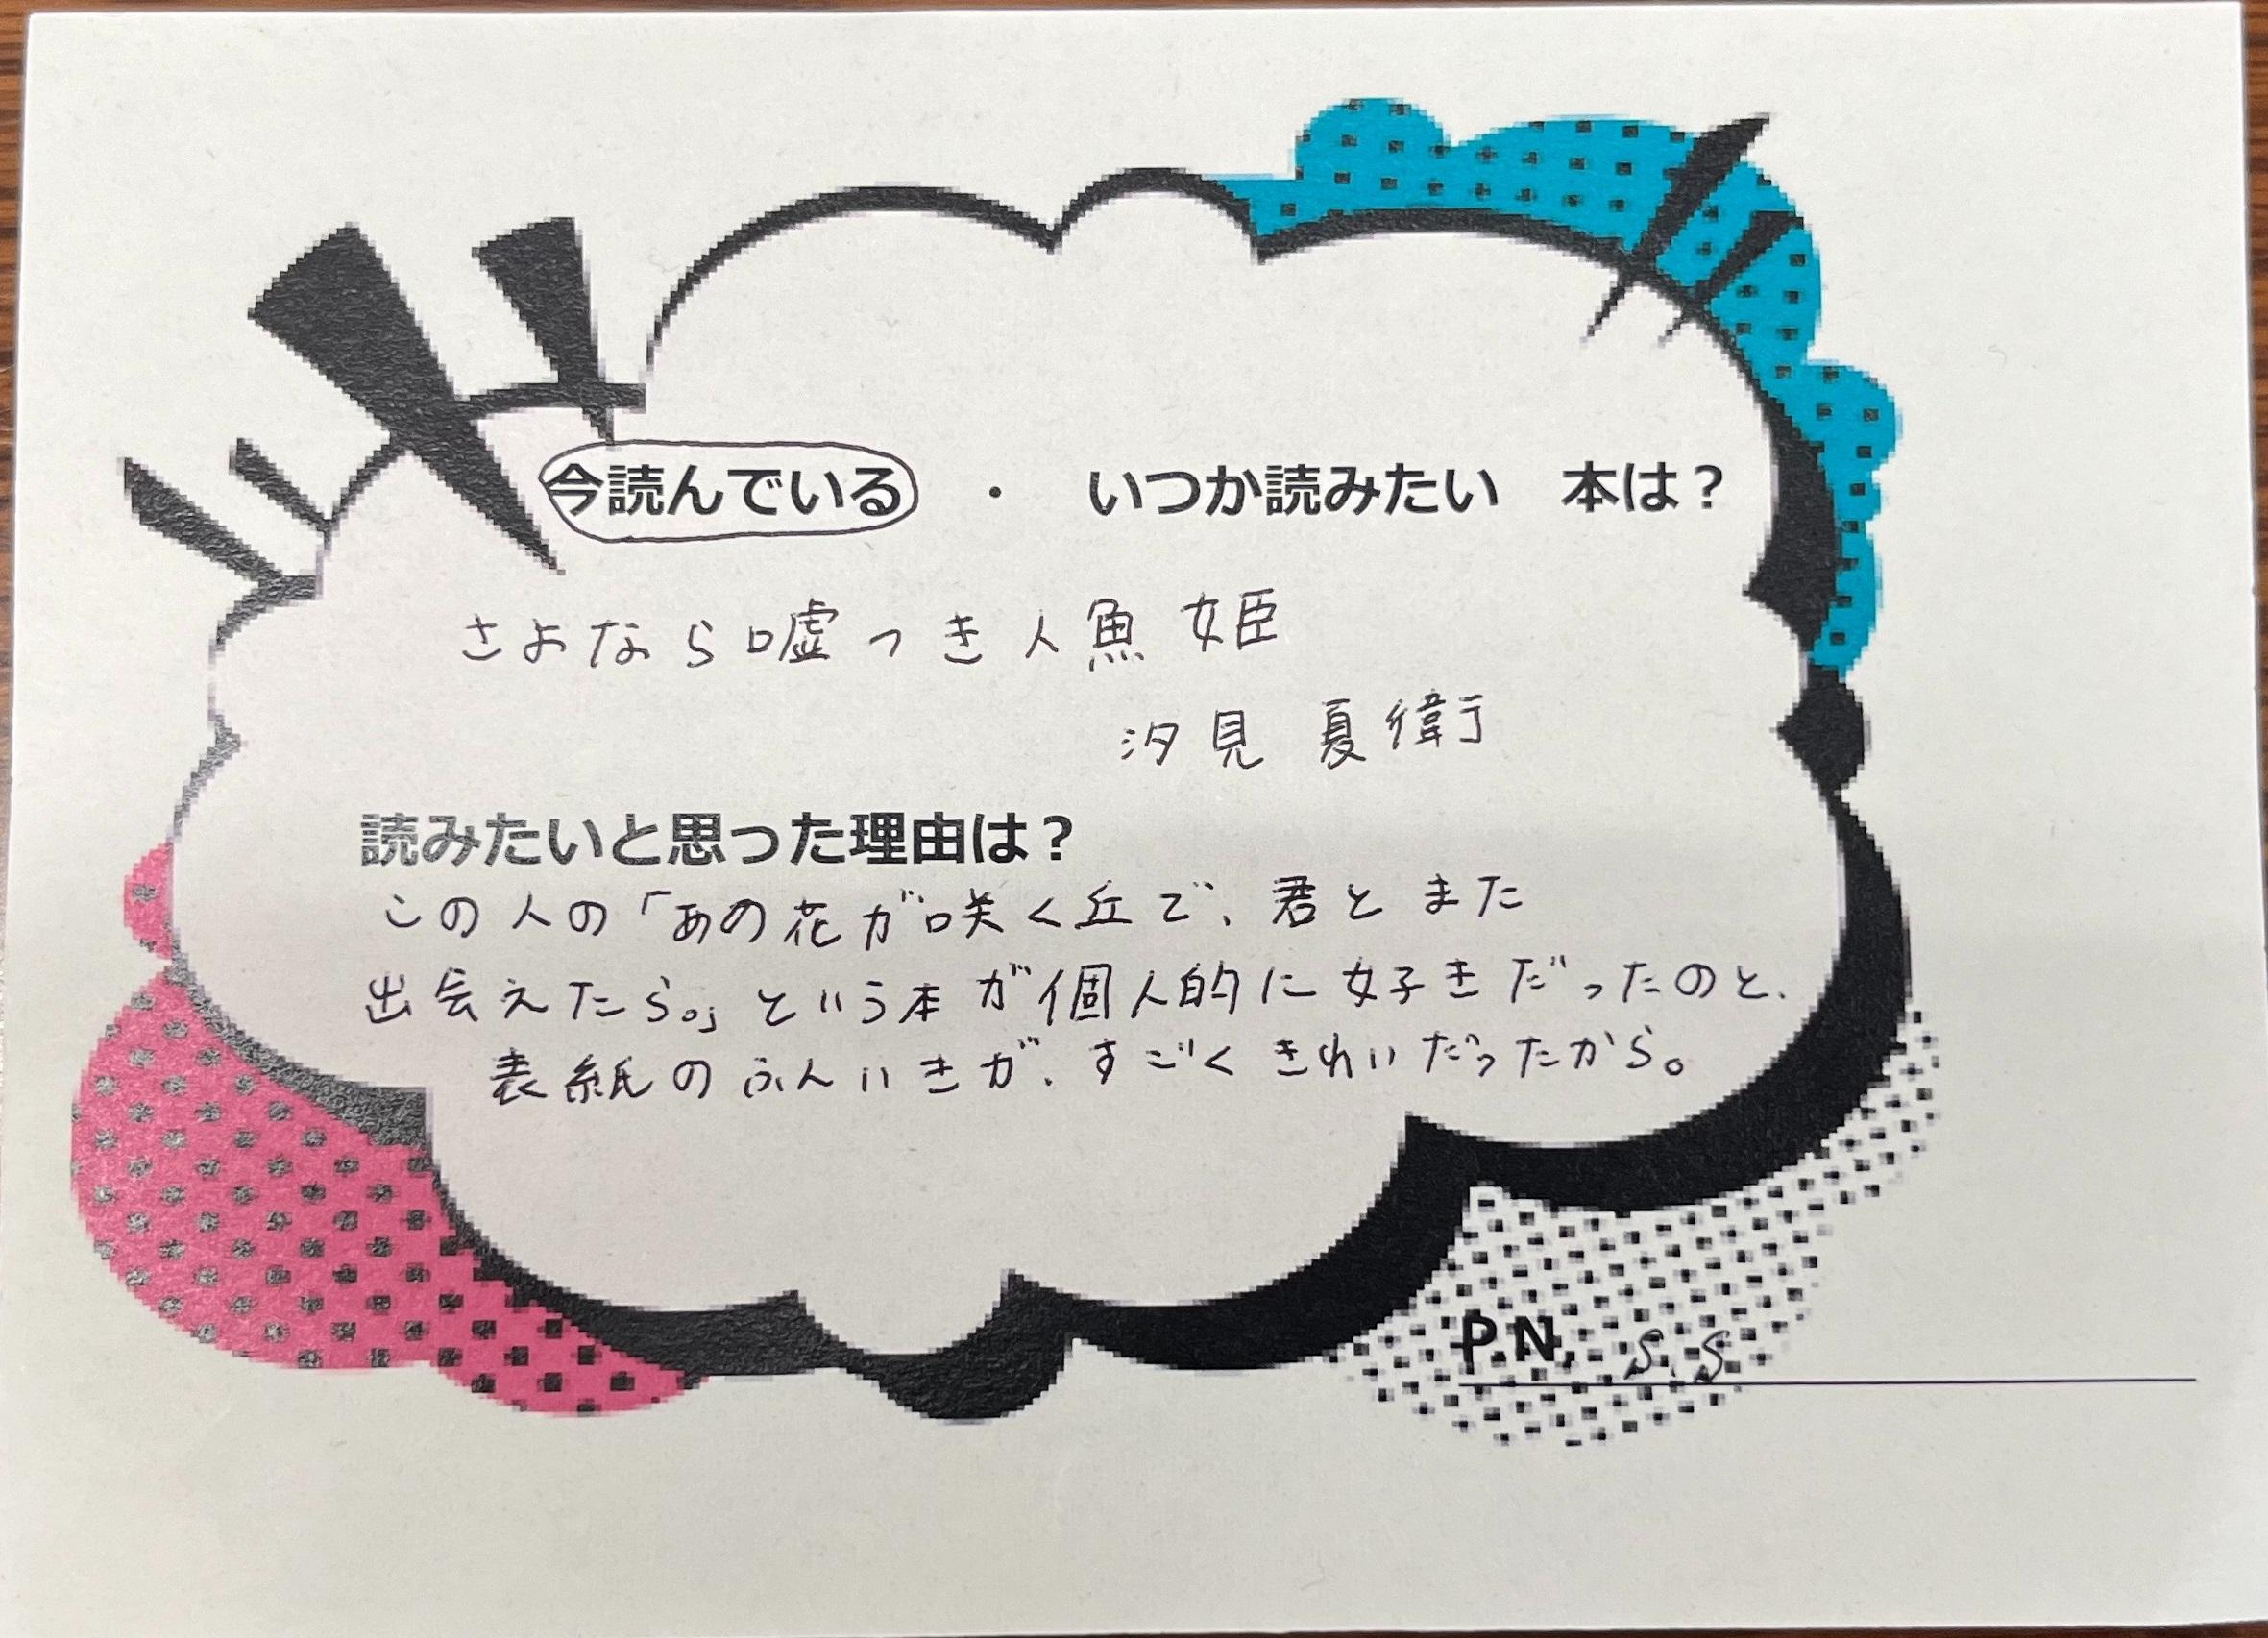 今読んでいる ・ いつか読みたい 本は？
さよなら嘘つき人魚姫
汐見 夏衛
読みたいと思った理由は？
この人の「あの花が咲く丘で、君とまた
出会えたら。」という本が個人的に好きだったのと、
表紙のふんいきが、すごくきれいだったから。
P.N. S.S